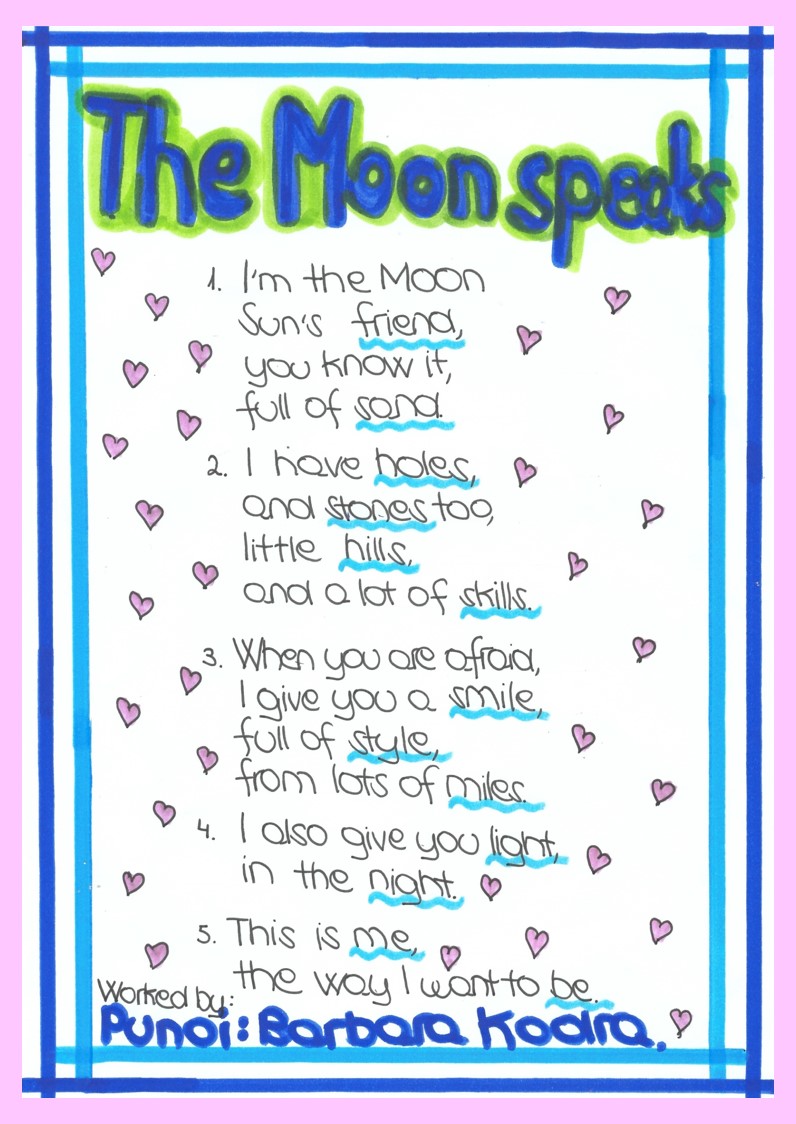 The Moon speaks
1. I'm the Moon
Sun's friend,
you know it,
full of sand.
2. I have holes,
and stones too,
little hills,
and a lot of skills.
3. When you are afraid,
I give you a smile,
full of style,
from lots of miles.
4. I also give you light,
in the night.
5. This is me,
the way I want to be.
Worked by:
Punoi: Barbara Kodra.